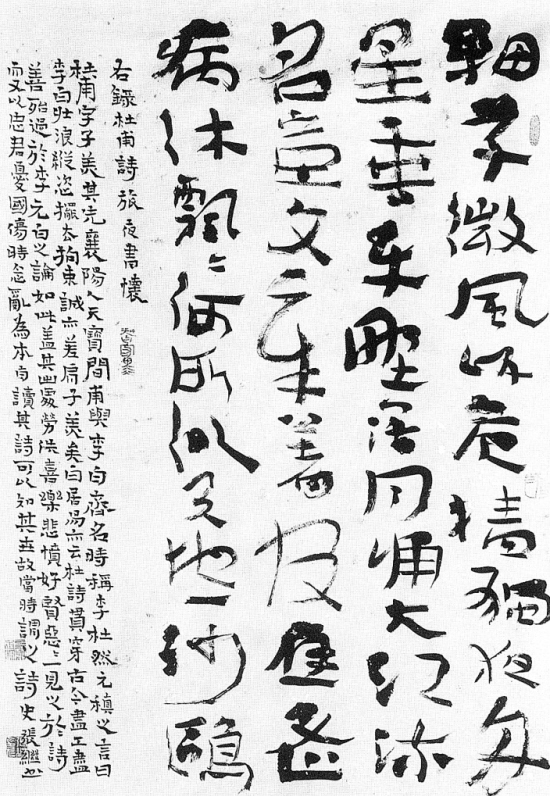 細草微風岸危檣獨夜舟
星垂平野闊月涌大江流
名豈文章著官應老
病休飄〻何所似天地一沙鷗
右錄杜甫詩旅夜書懷
杜甫字子美其先襄陽人天寶間甫與李白齊名時稱李杜然元稹之言曰
李白壯浪縱恣擺去拘束誠亦差肩子美矣白居易亦云杜詩貫穿古今盡工盡
善殆過於李元白之論如此蓋其出處勞佚喜樂悲憤好賢惡〻一見之於詩
而又以忠君憂國傷時念亂為本旨讀其詩可以知其世故當時謂之詩史張繼